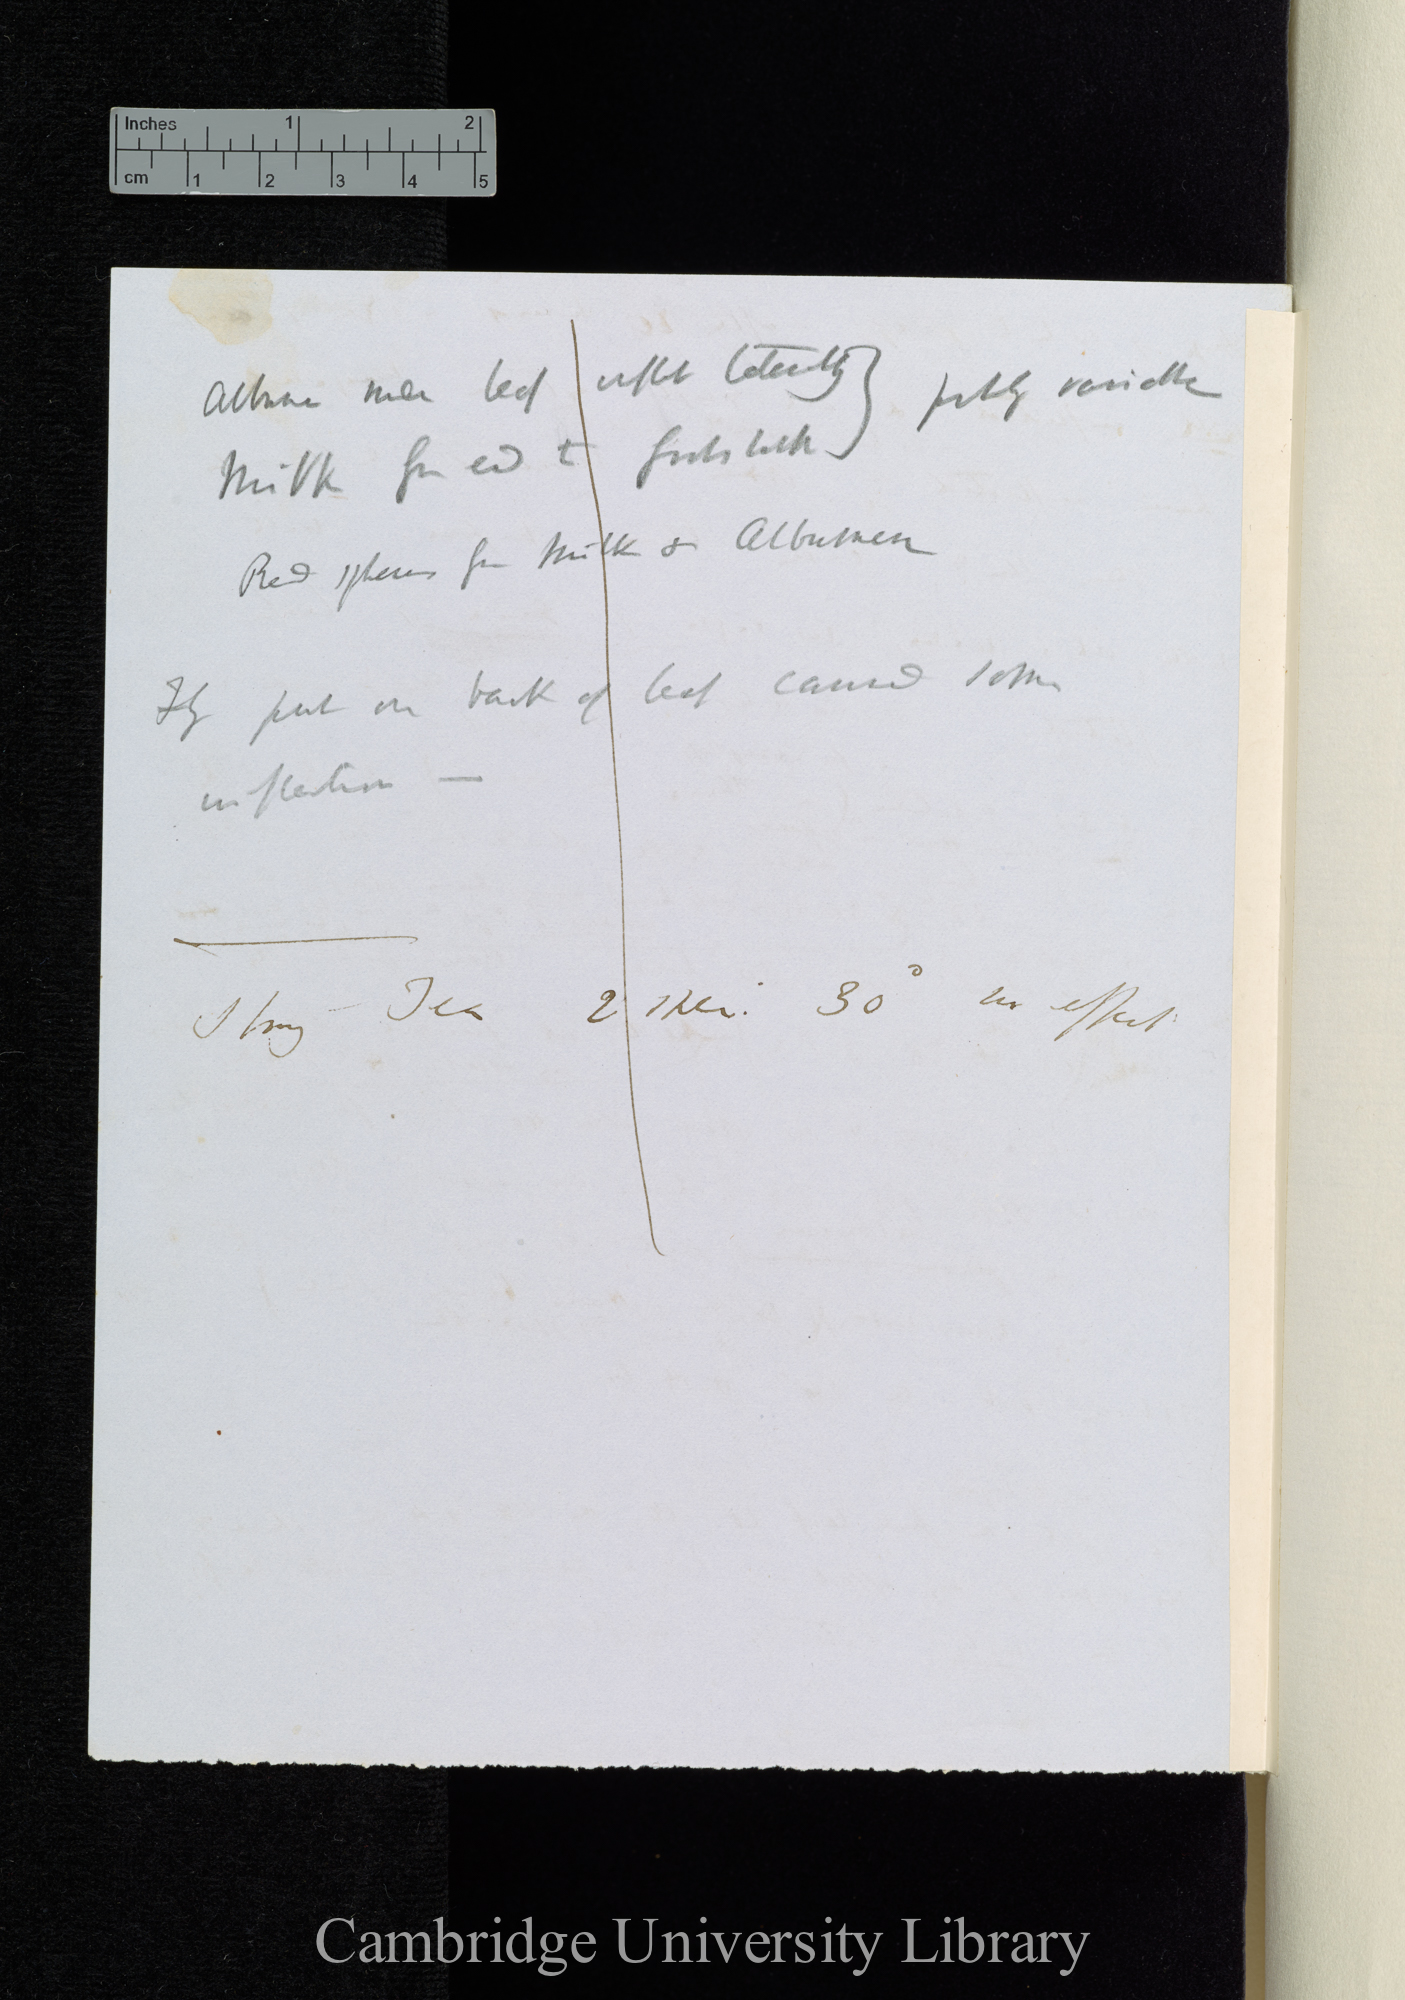 Inches 1 2
cm 1 2 3 4 5
Albumen leaf inflect laterally } partly variable
Milk from end to
Red spheres from Milk & Albumen
Fly put on back of leaf caused some
inflection —
Strong Tea 2 30° no effect
Cambridge University Library